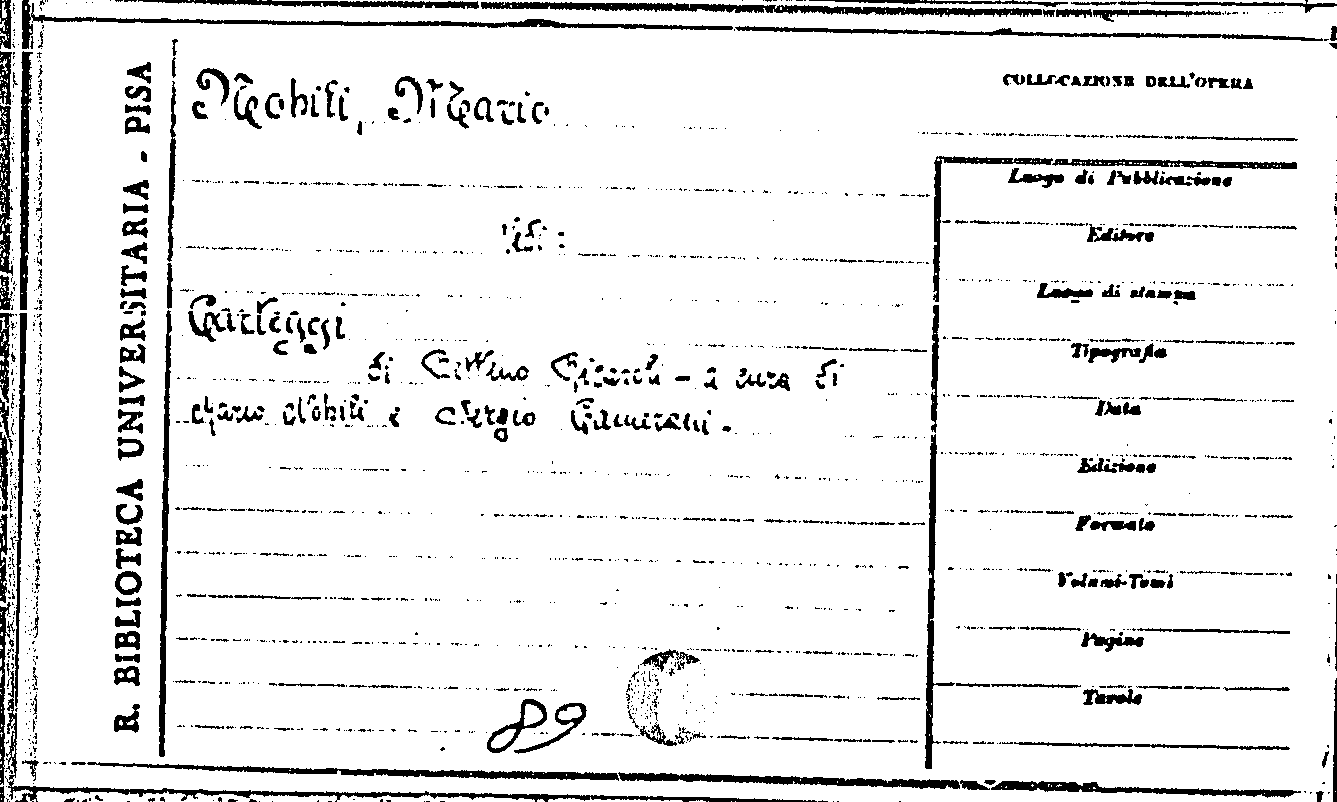 R. BIBLIOTECA UNIVERSITARIA - PISA
Nobili, Mario
COLLOCAZIONE DELL'OPERA
Vedi:
Carteggi
di Cilleno Girardi - a cura di
Mario Nobili e Sergio Camerani.
89
Luogo di Pubblicazione
Editore
Luogo di stampa
Tipografia
Data
Edizione
Formato
Volumi-Tomi
Pagine
Tavole